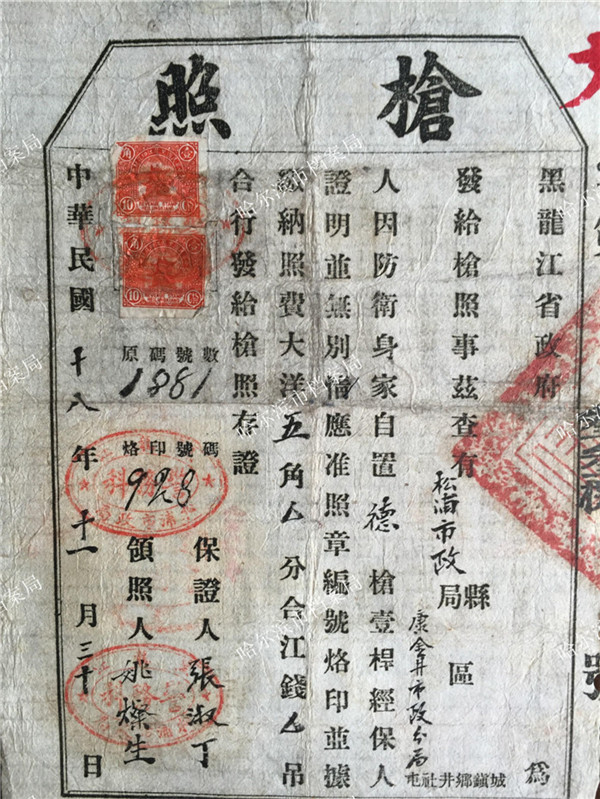 槍照
黑龍江省政府 爲
發給槍照事茲查有 松浦市政 縣局 區 康金井市政分局 城鎮鄉井社屯
人因防衛身家自置 德 槍壹桿經保人
證明並無別情應准照章編號烙印並據
繳納照費大洋五角厶分合江錢厶吊
合行發給槍照存證
原碼號數
1881
烙印號碼
928
保證人 張淑丁
領照人 姚燦生
中華民國十八年十一月三十日
壹角
10
10
號
哈尔滨市档案局